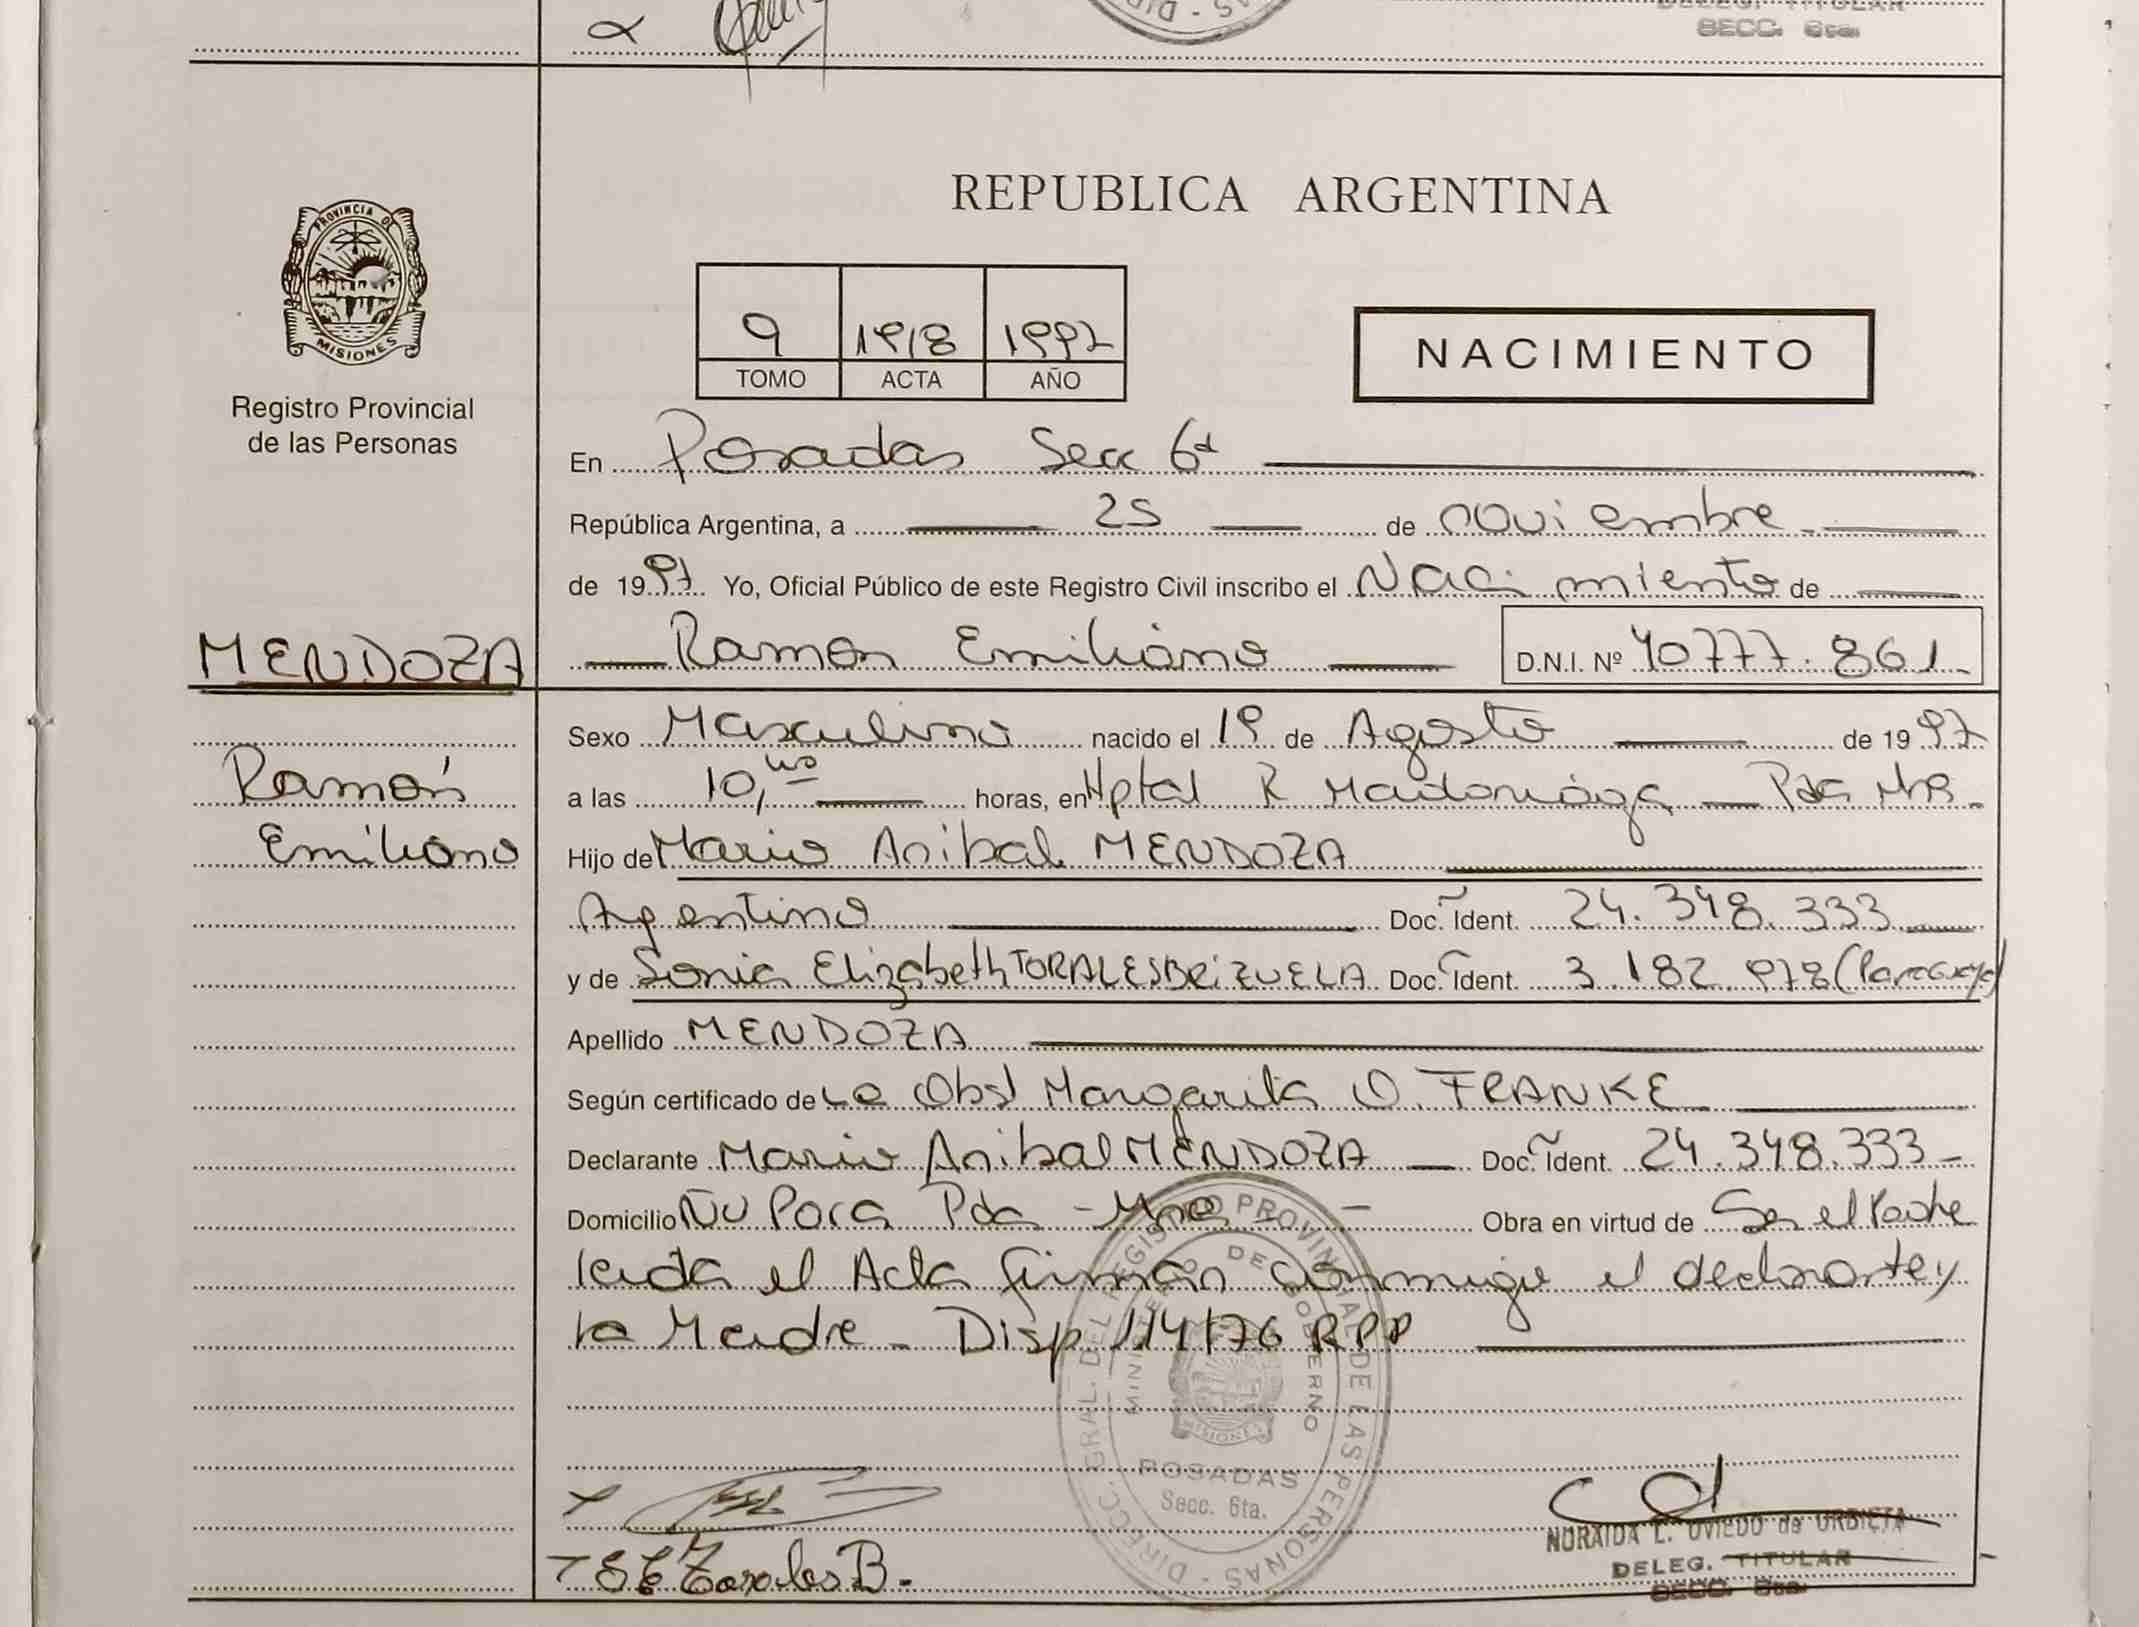 DELEG. TITULAR
SECC. 6ta.
PROVINCIA DE
MISIONES
Registro Provincial
de las Personas
REPUBLICA ARGENTINA
9 1918 1997
TOMO ACTA AÑO
NACIMIENTO
En Posadas Secc 6ª
República Argentina, a 25 de noviembre
de 1997 Yo, Oficial Público de este Registro Civil inscribo el Nacimiento de
MENDOZA
Ramon Emiliano D.N.I. Nº 40777.861
Sexo Masculino nacido el 19 de Agosto de 1997
Ramón
a las 10,hs horas, en Hptal R Madariaga Pdas Mnes
Emiliano
Hijo de Mario Anibal MENDOZA
Argentino Doc. Ident. 24.348.333
y de Sonia Elizabeth TORALES BRIZUELA Doc. Ident. 3.182.978 (Paraguaya)
Apellido MENDOZA
Según certificado de La Obst Margarita O. FRANKE
Declarante Mario Anibal MENDOZA Doc. Ident. 24.348.333
Domicilio Ñu Pora Pdas - Mnes - Obra en virtud de Ser el Padre
leida el Acta firman conmigo el declarante y
la Madre - Disp 114/76 RPP
DIRECC. GRAL. DEL REGISTRO PROVINCIAL DE LAS PERSONAS
MINISTERIO DE GOBIERNO
MISIONES
POSADAS
Secc. 6ta.
NORAIDA L. OVIEDO de URBIETA
DELEG. TITULAR
SECC. 6ta.
S E Torales B.